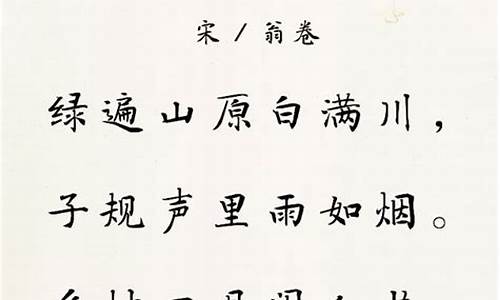 宋/翁卷
绿遍山原白满川，
子规声里雨如烟。